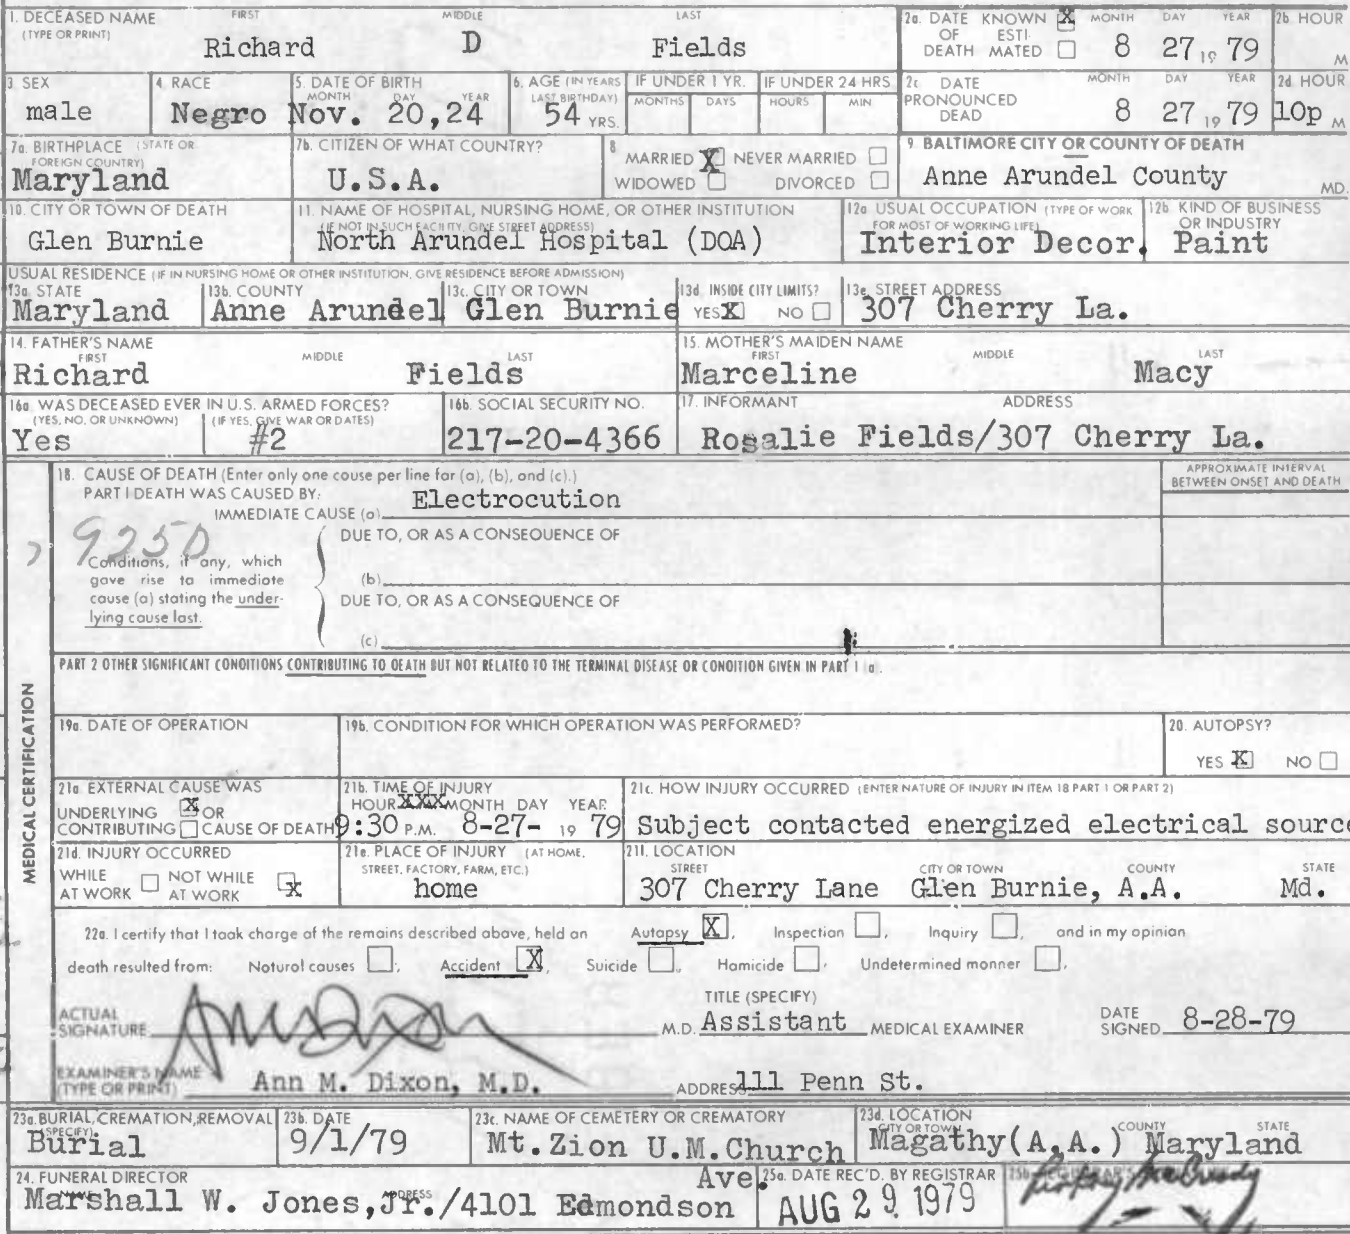 1. DECEASED NAME FIRST MIDDLE LAST
(TYPE OR PRINT)
Richard D Fields
2a. DATE KNOWN X MONTH DAY YEAR
OF ESTI-
DEATH MATED 8 27 19 79
2b HOUR
M
3 SEX
male
4 RACE
Negro
5. DATE OF BIRTH
MONTH DAY YEAR
Nov. 20,24
6. AGE (IN YEARS
LAST BIRTHDAY)
54 YRS.
IF UNDER 1 YR.
MONTHS DAYS
IF UNDER 24 HRS
HOURS MIN
2c DATE MONTH DAY YEAR
PRONOUNCED
DEAD 8 27 19 79
2d HOUR
10p M
7a. BIRTHPLACE (STATE OR
FOREIGN COUNTRY)
Maryland
7b. CITIZEN OF WHAT COUNTRY?
U.S.A.
8
MARRIED X NEVER MARRIED
WIDOWED DIVORCED
9. BALTIMORE CITY OR COUNTY OF DEATH
Anne Arundel County MD.
10. CITY OR TOWN OF DEATH
Glen Burnie
11. NAME OF HOSPITAL, NURSING HOME, OR OTHER INSTITUTION
(IF NOT IN SUCH FACILITY, GIVE STREET ADDRESS)
North Arundel Hospital (DOA)
12a USUAL OCCUPATION (TYPE OF WORK
FOR MOST OF WORKING LIFE)
Interior Decor.
12b KIND OF BUSINESS
OR INDUSTRY
Paint
USUAL RESIDENCE (IF IN NURSING HOME OR OTHER INSTITUTION, GIVE RESIDENCE BEFORE ADMISSION)
13a. STATE
Maryland
13b. COUNTY
Anne Arundel
13c. CITY OR TOWN
Glen Burnie
13d. INSIDE CITY LIMITS?
YES X NO
13e. STREET ADDRESS
307 Cherry La.
14. FATHER'S NAME
FIRST MIDDLE LAST
Richard Fields
15. MOTHER'S MAIDEN NAME
FIRST MIDDLE LAST
Marceline Macy
16a. WAS DECEASED EVER IN U.S. ARMED FORCES?
(YES, NO, OR UNKNOWN) (IF YES, GIVE WAR OR DATES)
Yes #2
16b. SOCIAL SECURITY NO.
217-20-4366
17. INFORMANT ADDRESS
Rosalie Fields/307 Cherry La.
MEDICAL CERTIFICATION
18. CAUSE OF DEATH (Enter only one cause per line for (a), (b), and (c).)
PART I DEATH WAS CAUSED BY:
IMMEDIATE CAUSE (a) Electrocution
APPROXIMATE INTERVAL
BETWEEN ONSET AND DEATH
DUE TO, OR AS A CONSEQUENCE OF
Conditions, if any, which
gave rise to immediate
cause (a) stating the under-
lying cause last.
(b)
DUE TO, OR AS A CONSEQUENCE OF
(c)
PART 2 OTHER SIGNIFICANT CONDITIONS CONTRIBUTING TO DEATH BUT NOT RELATED TO THE TERMINAL DISEASE OR CONDITION GIVEN IN PART 1 (a).
19a. DATE OF OPERATION
19b. CONDITION FOR WHICH OPERATION WAS PERFORMED?
20. AUTOPSY?
YES X NO
21a. EXTERNAL CAUSE WAS
UNDERLYING X OR
CONTRIBUTING CAUSE OF DEATH
21b. TIME OF INJURY
HOUR XXX MONTH DAY YEAR
9:30 P.M. 8-27- 19 79
21c. HOW INJURY OCCURRED (ENTER NATURE OF INJURY IN ITEM 18 PART 1 OR PART 2)
Subject contacted energized electrical source
21d. INJURY OCCURRED
WHILE NOT WHILE
AT WORK AT WORK X
21e. PLACE OF INJURY (AT HOME,
STREET, FACTORY, FARM, ETC.)
home
21f. LOCATION
STREET CITY OR TOWN COUNTY STATE
307 Cherry Lane Glen Burnie, A.A. Md.
22a. I certify that I took charge of the remains described above, held an Autopsy X, Inspection , Inquiry , and in my opinion
death resulted from: Natural causes , Accident X, Suicide , Homicide , Undetermined manner ,
ACTUAL
SIGNATURE Ann M. Dixon M.D.
TITLE (SPECIFY)
Assistant MEDICAL EXAMINER
DATE
SIGNED 8-28-79
EXAMINER'S NAME
(TYPE OR PRINT) Ann M. Dixon, M.D. ADDRESS 111 Penn St.
23a. BURIAL, CREMATION, REMOVAL
(SPECIFY)
Burial
23b. DATE
9/1/79
23c. NAME OF CEMETERY OR CREMATORY
Mt.Zion U.M.Church
23d. LOCATION
CITY OR TOWN COUNTY STATE
Magathy(A.A.) Maryland
24. FUNERAL DIRECTOR
ADDRESS
Marshall W. Jones,Jr./4101 Edmondson Ave.
25a. DATE REC'D. BY REGISTRAR
AUG 29 1979